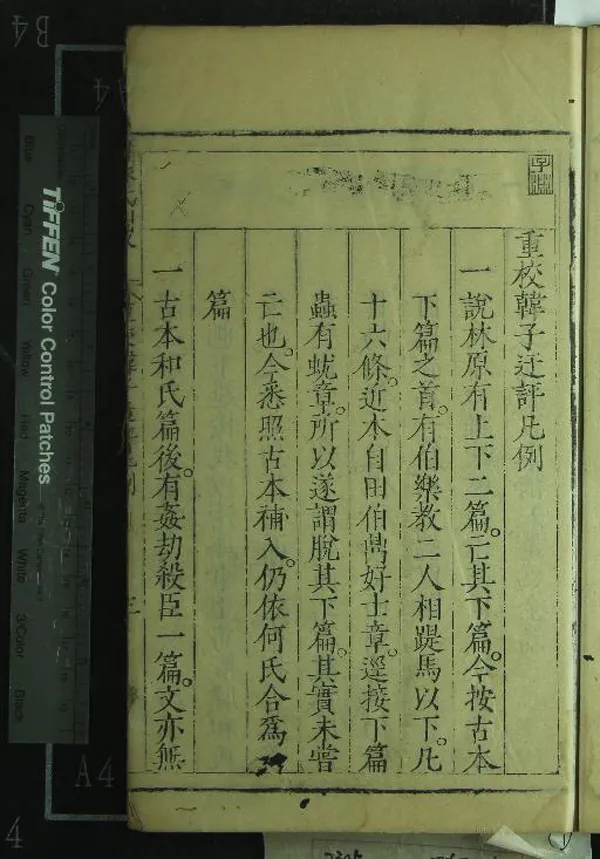 重校韓子迂評凡例
一說林原有上下二篇。亡其下篇。今按古本
下篇之首。有伯樂教二人相踶馬以下。凡
十六條。近本自田伯鼎好士章。逕接下篇
蟲有蚘章。所以遂謂脫其下篇。其實未嘗
亡也。今悉照古本補入。仍依何氏合爲
篇
一古本和氏篇後。有姦劫殺臣一篇。文亦無
TIFFEN Color Control Patches
Blue
Cyan
Green
Yellow
Red
Magenta
White
3/Color
Black
B4
A4
A4
4